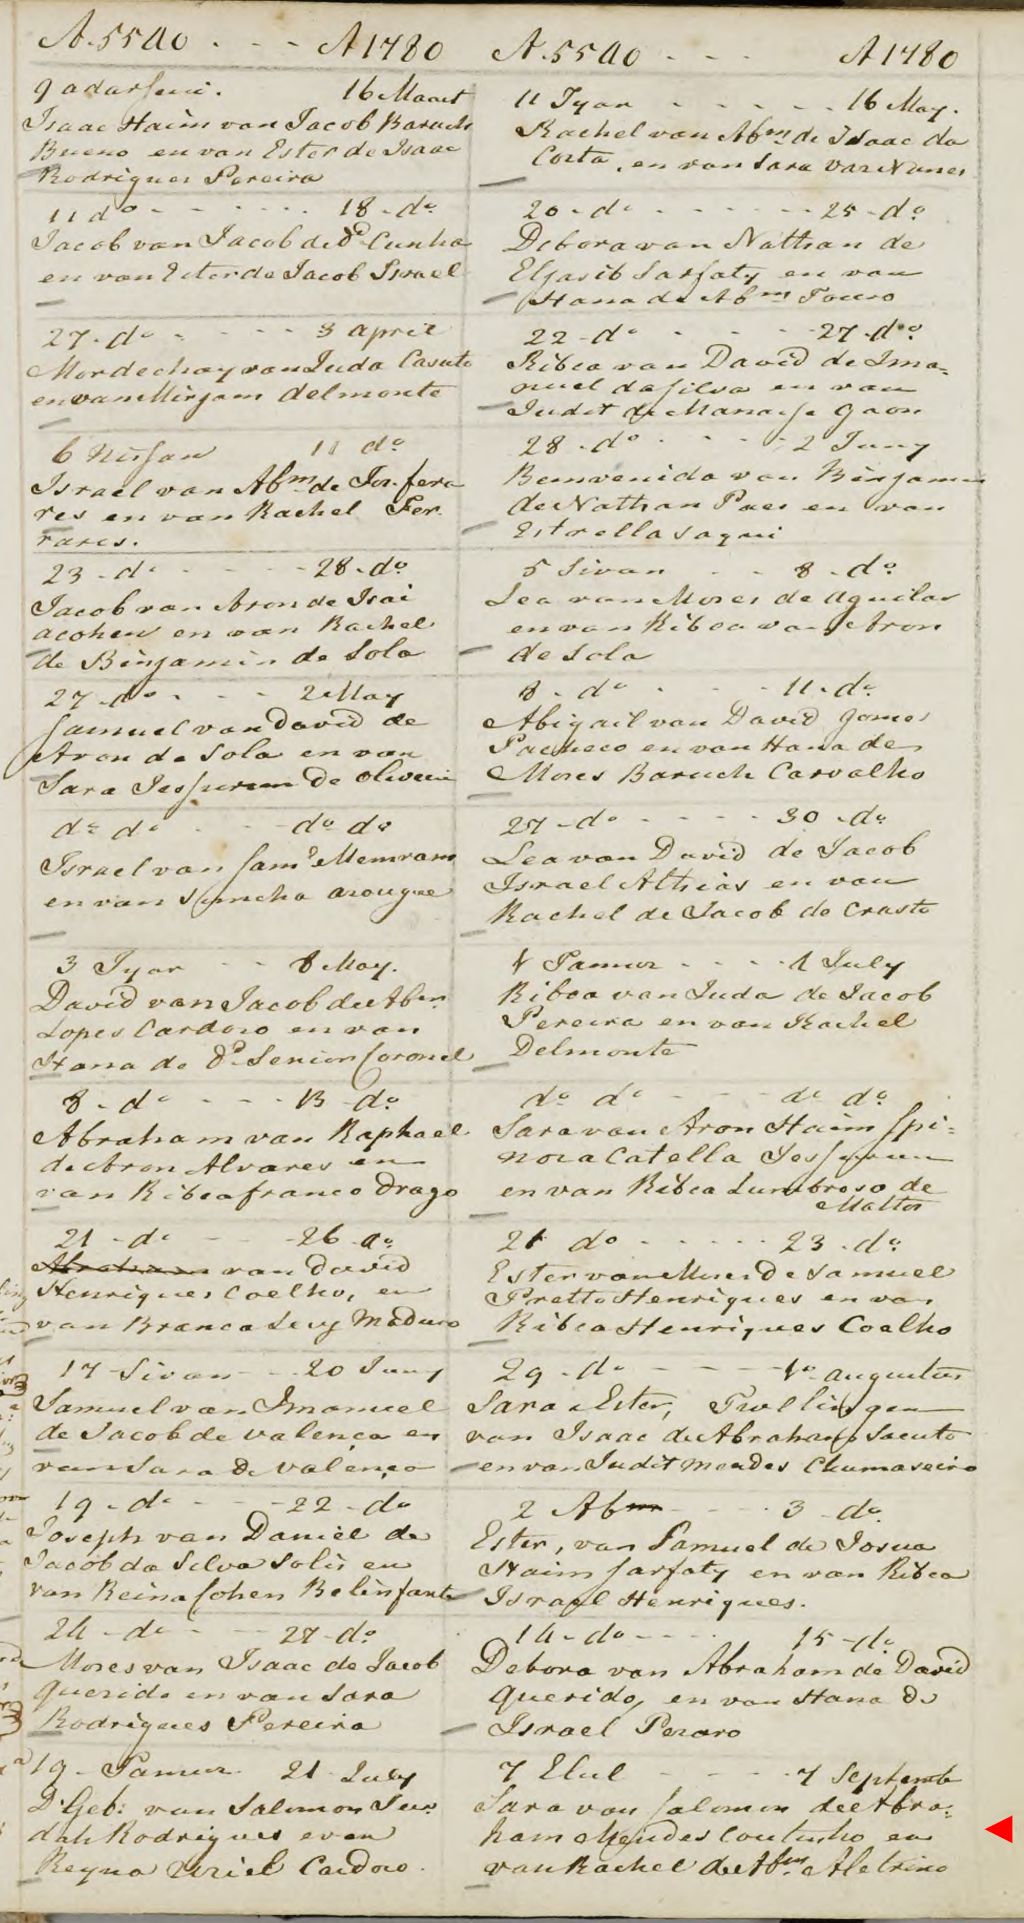 A. 5540 . - - - A 1780
9 adar seni. 16 Maart
Isaac Haim van Jacob Baruch
Bueno en van Ester de Isaac
Rodrigues Pereira
11 do - - - . . . 18 - do
Jacob van Jacob de Dd Cunha
en van Ester de Jacob Israel
27 - do - - - - 3 april
Mordechay van Juda Casuto
en van Mirjam delmonte
6 Nissan 11 do
Israel van Abm de Jos. fera
res en van Rachel Fer-
rares.
23 - do - - - - 28 - do
Jacob van Aron de Isai
acohen en van Rachel
de Binjamin de Sola
27 - do - - - 2 May
Samuel van David de
Aron de Sola en van
Sara Jessurun De Olivei
do do - - - do do
Israel van Saml Memram
en van Simcha arougue
3 Iyar - - 8 May.
David van Jacob de Abm
Lopes Cardozo en van
Hana de Dd Senior Coronel
8 - do - - - 13 - do
Abraham van Raphael
de Aron Alvares en
van Ribca franco Drago
21 - do - - - 26 do
Abraham van David
Henriques Coelho, en
van Branca Levy Maduro
17 Sivan - - 20 Juny
Samuel van Imanuel
de Jacob de valença en
van Sara de valença
19 - do - - - 22 - do
Joseph van Daniel de
Jacob da Silva Solis en
van Reina Cohen Belinfante
24 - do - - - 27 - do
Moses van Isaac de Jacob
querido en van Sara
Rodrigues Pereira
19 - Tamuz 21 July
D'Geb: van Salomon Jeu
dah Rodrigues en van
Reyna Uriel Cardozo.
A. 5540 - - - A 1780
11 Iyar - - - - - - 16 May.
Rachel van Abm de Isaac da
Costa, en van Sara Vaz Nunes
20 - do - - - - - 25 - do
Debora van Nathan de
Eljasib Sarfaty en van
Hana de Abm Touro
22 - do - - - - 27 - do
Ribca van David de Ima-
nuel da Silva en van
Judit de Manasse Gaon
28 - do - - - - 2 Juny
Bemvenida van Binjamin
de Nathan Paes en van
Estrella Saqui
5 Sivan - - - 8 - do
Lea van Moses de aguilar
en van Ribca van Aron
de Sola
8 - do - - - - 11 - do
Abigail van David gomes
Pacheco en van Hana de
Moses Baruch Carvalho
27 - do - - - - - 30 - do
Lea van David de Jacob
Israel Athias en van
Rachel de Jacob de Crasto
4 Tamuz - - - - 1 July
Ribca van Juda de Jacob
Pereira en van Rachel
Delmonte
do do - - - do do
Sara van Aron Haim Spi-
noza Catella Jessurun
en van Ribca Lumbroso de
Mattos
21 do - - - - - 23 - do
Ester van Moses De Samuel
Pretto Henriques en van
Ribca Henriques Coelho
29 - do - - - - 1o augustus
Sara & Ester, Twellingen
van Isaac de Abraham Sacuto
en van Judit Mendes Chumaseiro
2 Ab - - - - 3 - do
Ester, van Samuel de Josua
Haim Sarfaty en van Ribca
Israel Henriques.
14 - do - - - - 15 - do
Debora van Abraham de David
querido, en van Hana de
Israel Pesaro
7 Elul - - - - 7 Septemb
Sara van Salomon de Abra-
ham Mendes Coutinho en
van Rachel de Abm Aletrino